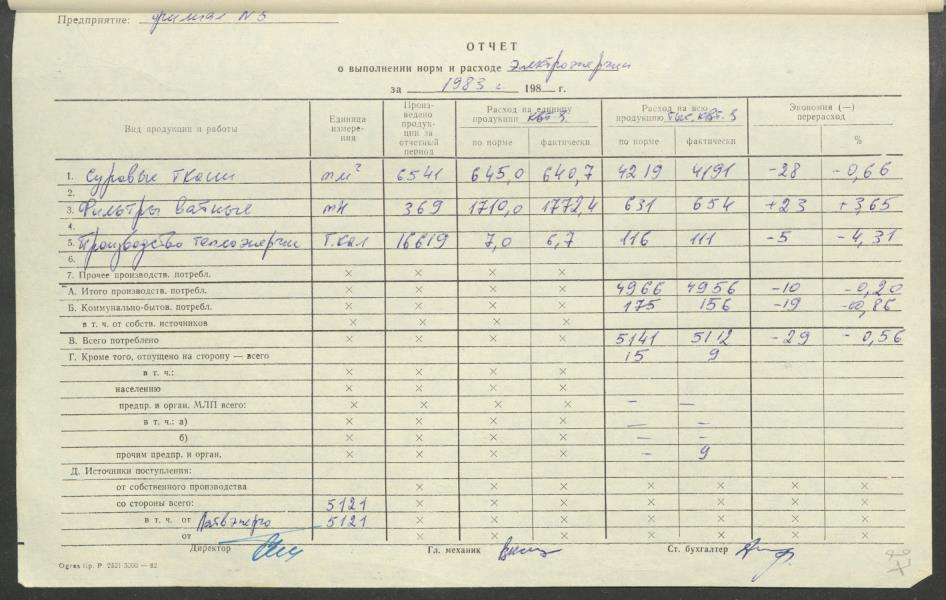 Предприятие: филиал N 5
ОТЧЕТ
о выполнении норм и расходе Электроэнергии
за 1983 г. 198 г.
Вид продукции и работы | Единица измерения | Произведено продукции за отчетный период | Расход на единицу продукции квт.з | Расход на всю продукцию тыс. квт.з | Экономия (—) перерасход
по норме | фактически | по норме | фактически | %
1. Суровые ткани | тм² | 6541 | 645,0 | 640,7 | 4219 | 4191 | -28 | -0,66
2.
3. Фильтры ватные | тн | 369 | 1710,0 | 1772,4 | 631 | 654 | +23 | +3,65
4.
5. Производство теплоэнергии | Г.кал | 16619 | 7,0 | 6,7 | 116 | 111 | -5 | -4,31
6.
7. Прочее производств. потребл. × × × ×
А. Итого производств. потребл. × × × × 4966 4956 -10 -0,20
Б. Коммунально-бытов. потребл. × × × × 175 156 -19 -10,86
в т. ч. от собств. источников × × × ×
В. Всего потреблено × × × × 5141 5112 -29 -0,56
Г. Кроме того, отпущено на сторону — всего 15 9
в т. ч.: × × × ×
населению × × × ×
предпр. и орган. МЛП всего: × × × × — —
в т. ч.: а) × × × × — —
б) × × × × — —
прочим предпр. и орган. × × × × — 9
Д. Источники поступления:
от собственного производства × × × × × × ×
со стороны всего: 5121 × × × × × × ×
в т. ч. от Латвэнерго 5121 × × × × × × ×
от × × × × × × ×
Директор Гл. механик Ст. бухгалтер
Ogres tip. P. 2521 5000 — 82